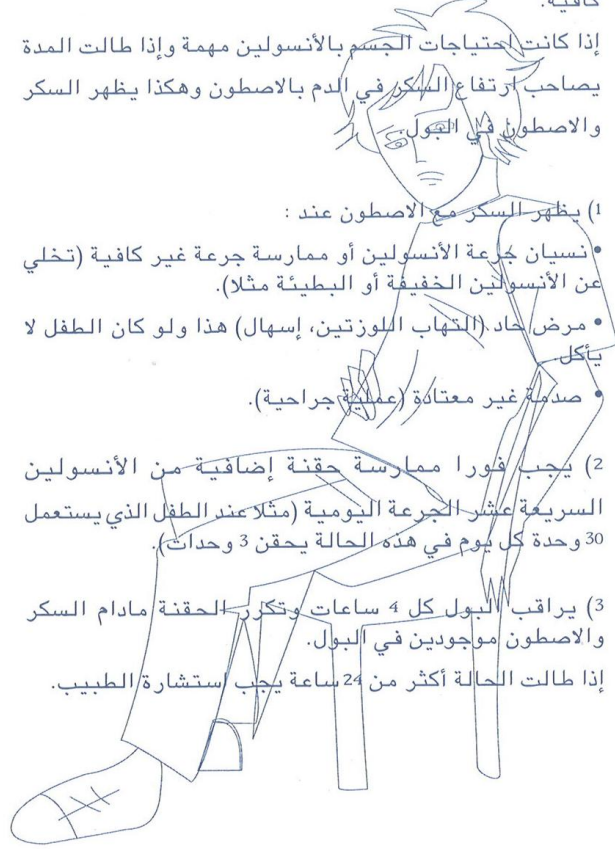 كافية.
إذا كانت إحتياجات الجسم بالأنسولين مهمة وإذا طالت المدة
يصاحب إرتفاع السكر في الدم بالاصطون وهكذا يظهر السكر
والاصطون في البول.
1) يظهر السكر مع الاصطون عند :
• نسيان جرعة الأنسولين أو ممارسة جرعة غير كافية (تخلي
عن الأنسولين الخفيفة أو البطيئة مثلا).
• مرض حاد (التهاب اللوزتين، إسهال) هذا ولو كان الطفل لا
يأكل.
• صدمة غير معتادة (عملية جراحية).
2) يجب فورا ممارسة حقنة إضافية من الأنسولين
السريعة عشر الجرعة اليومية (مثلا عند الطفل الذي يستعمل
30 وحدة كل يوم في هذه الحالة يحقن 3 وحدات).
3) يراقب البول كل 4 ساعات وتكرر الحقنة مادام السكر
والاصطون موجودين في البول.
إذا طالت الحالة أكثر من 24 ساعة يجب إستشارة الطبيب.